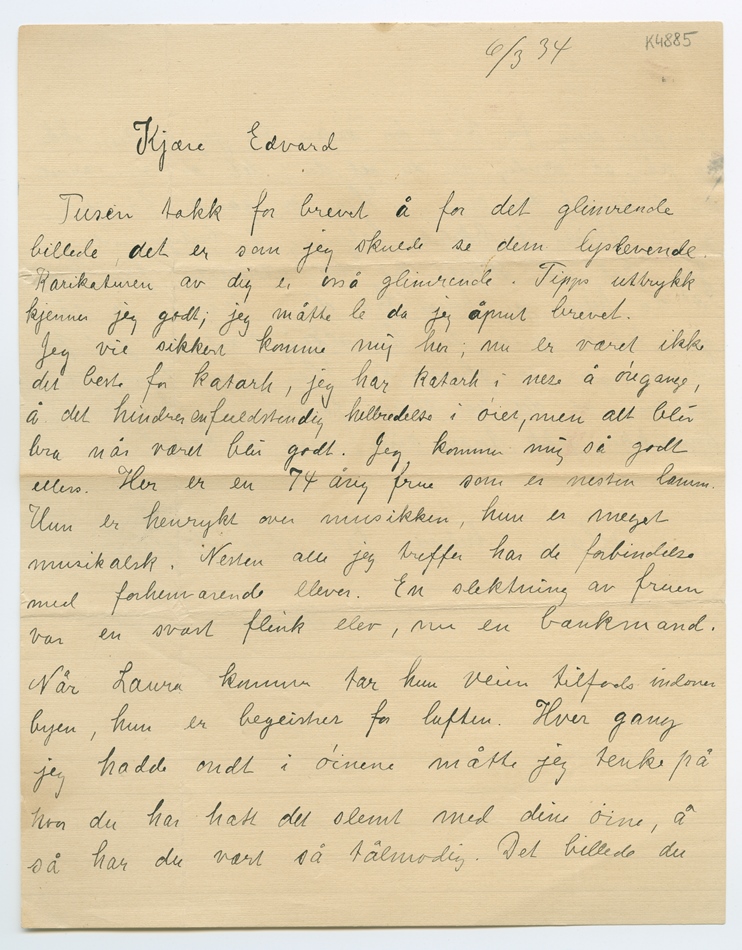 6/3 34
K4885
Kjære Edvard
Tusen takk for brevet å for det glimrende
billede, det er som jeg skulde se dem lyslevende.
Karikaturen av dig er også glimrende. Tipps uttrykk
kjenner jeg godt; jeg måtte le da jeg åpnut brevet.
Jeg vil sikkert komme mig her; nu er været ikke
det beste for katarh, jeg har katarh i nese å øregange,
å det hindrer en fuldstendig helbredelse i øiet, men alt blir
bra når været blir godt. Jeg kommer mig så godt
ellers. Her er en 74 årig frue som er nesten lamm.
Hun er henrykt over musikken, hun er meget
musikalsk. Nesten alle jeg treffer har de forbindelse
med forhenværende elever. En slektning av fruen
var en svært flink elev, nu en bankmand.
Når Laura kommer tar hun veien tilfods indover
byen, hun er begeistret for luften. Hver gang
jeg hadde ondt i øinene måtte jeg tenke på
hvor du har hatt det slemt med dine øine, å
så har du vært så tålmodig. Det billede du